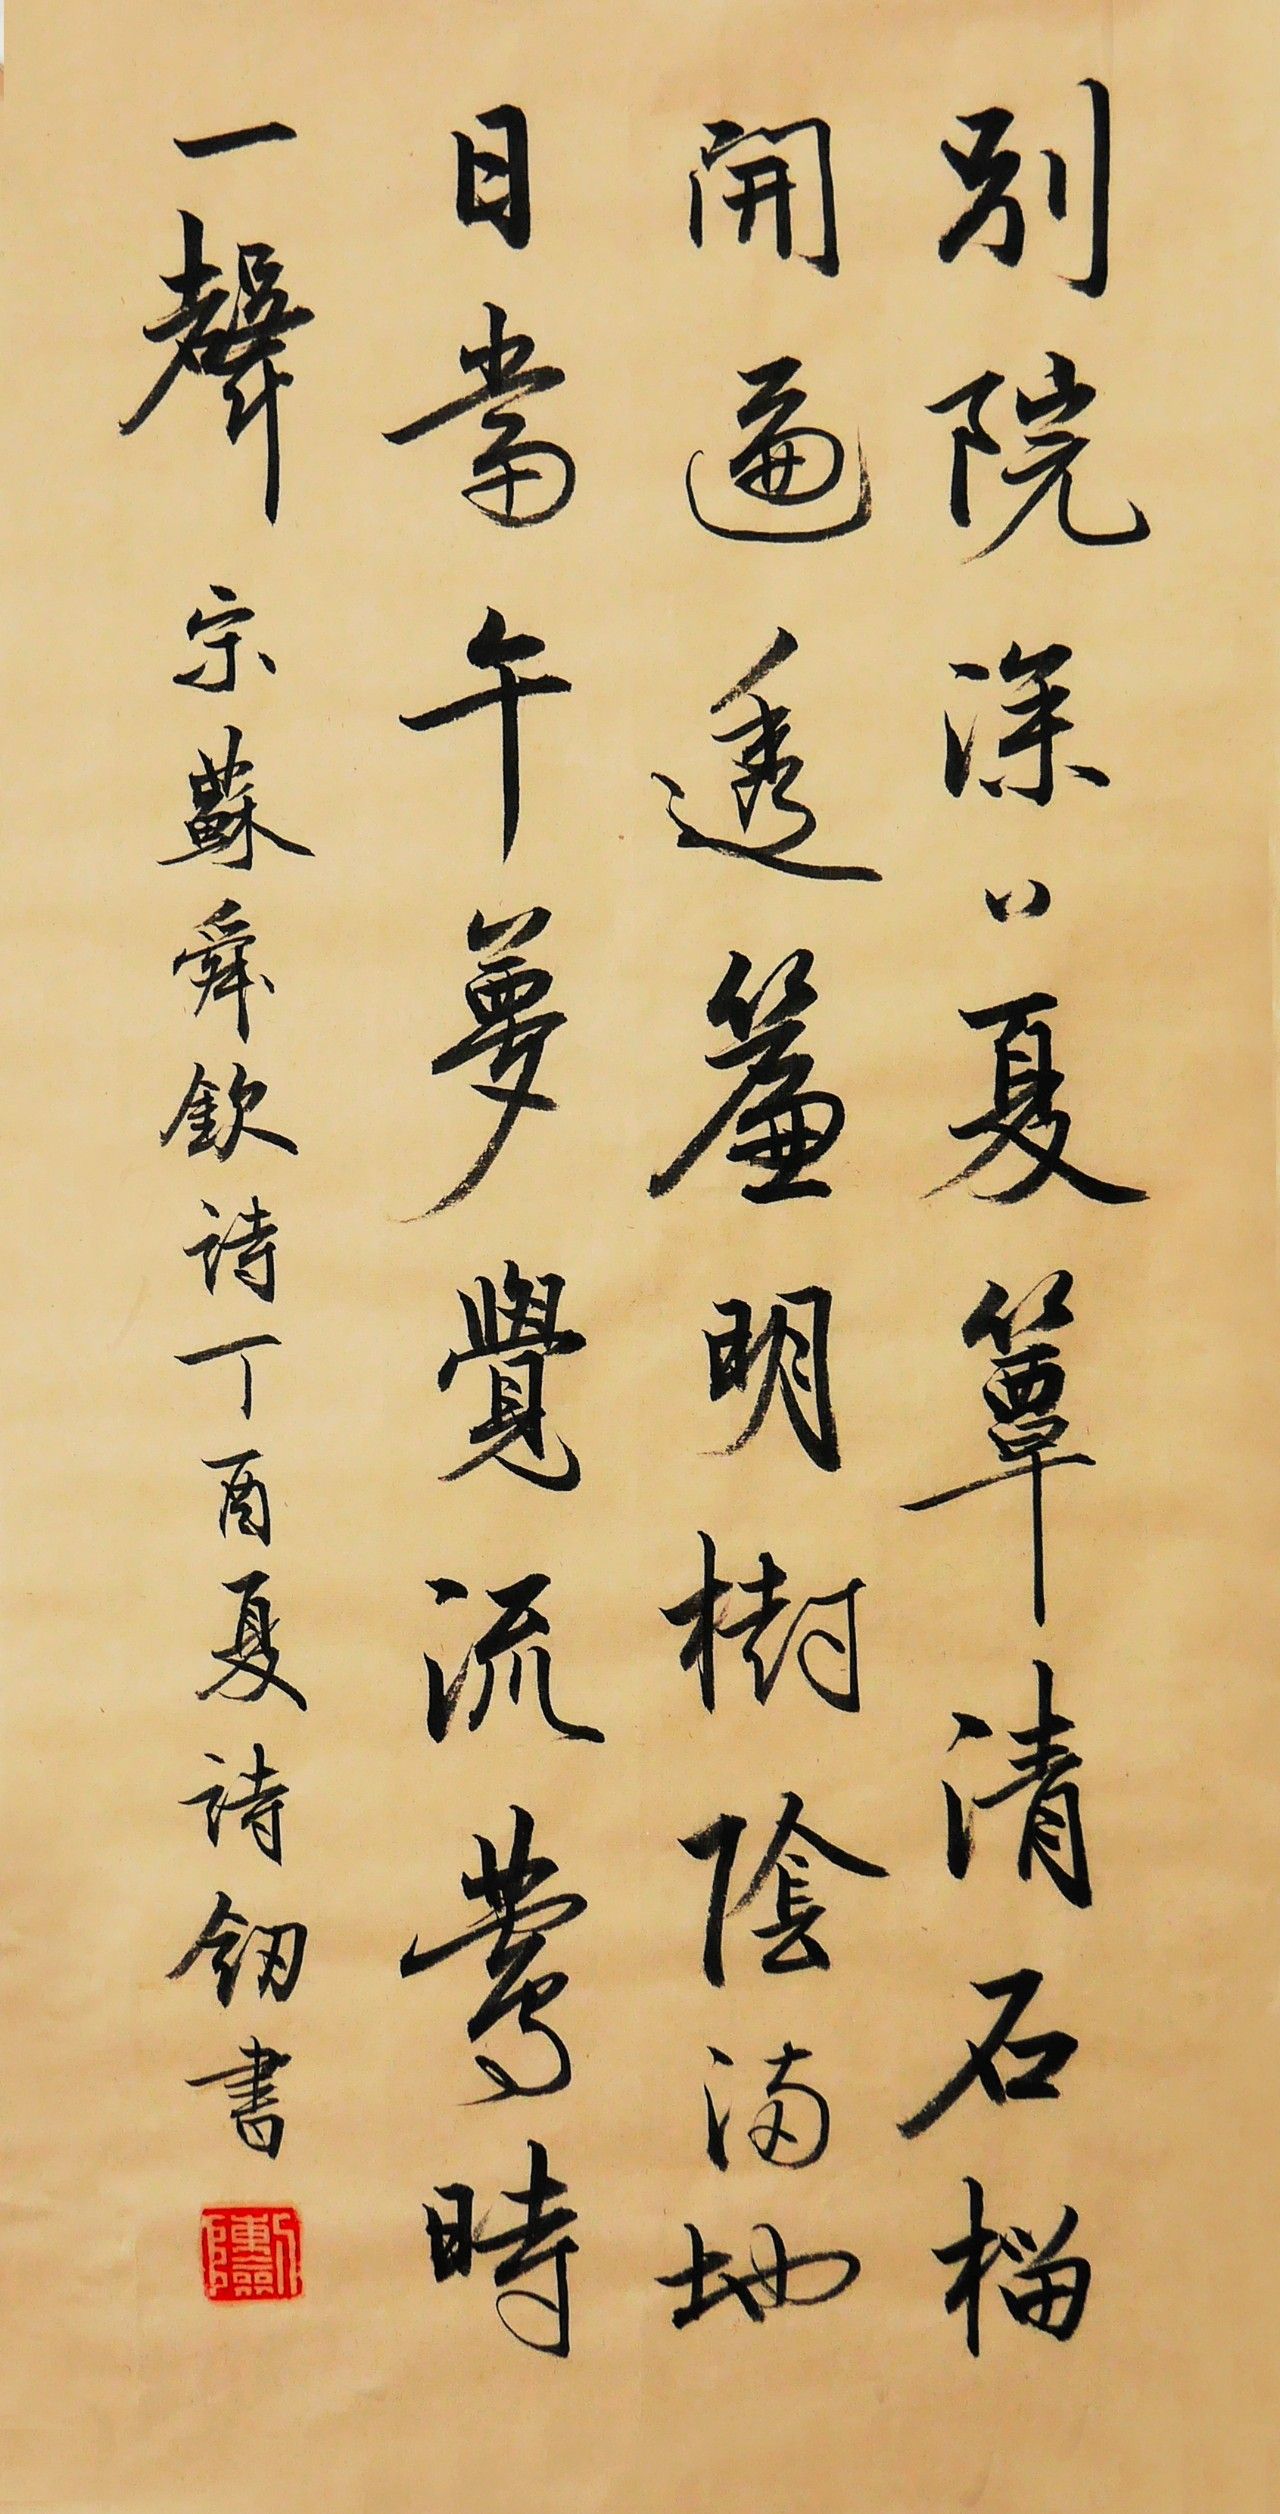 別院深〻夏簟清石榴
開遍透簾明樹陰滿地
日當午夢覺流鶯時
一聲 宋蘇舜欽詩丁酉夏詩釰書